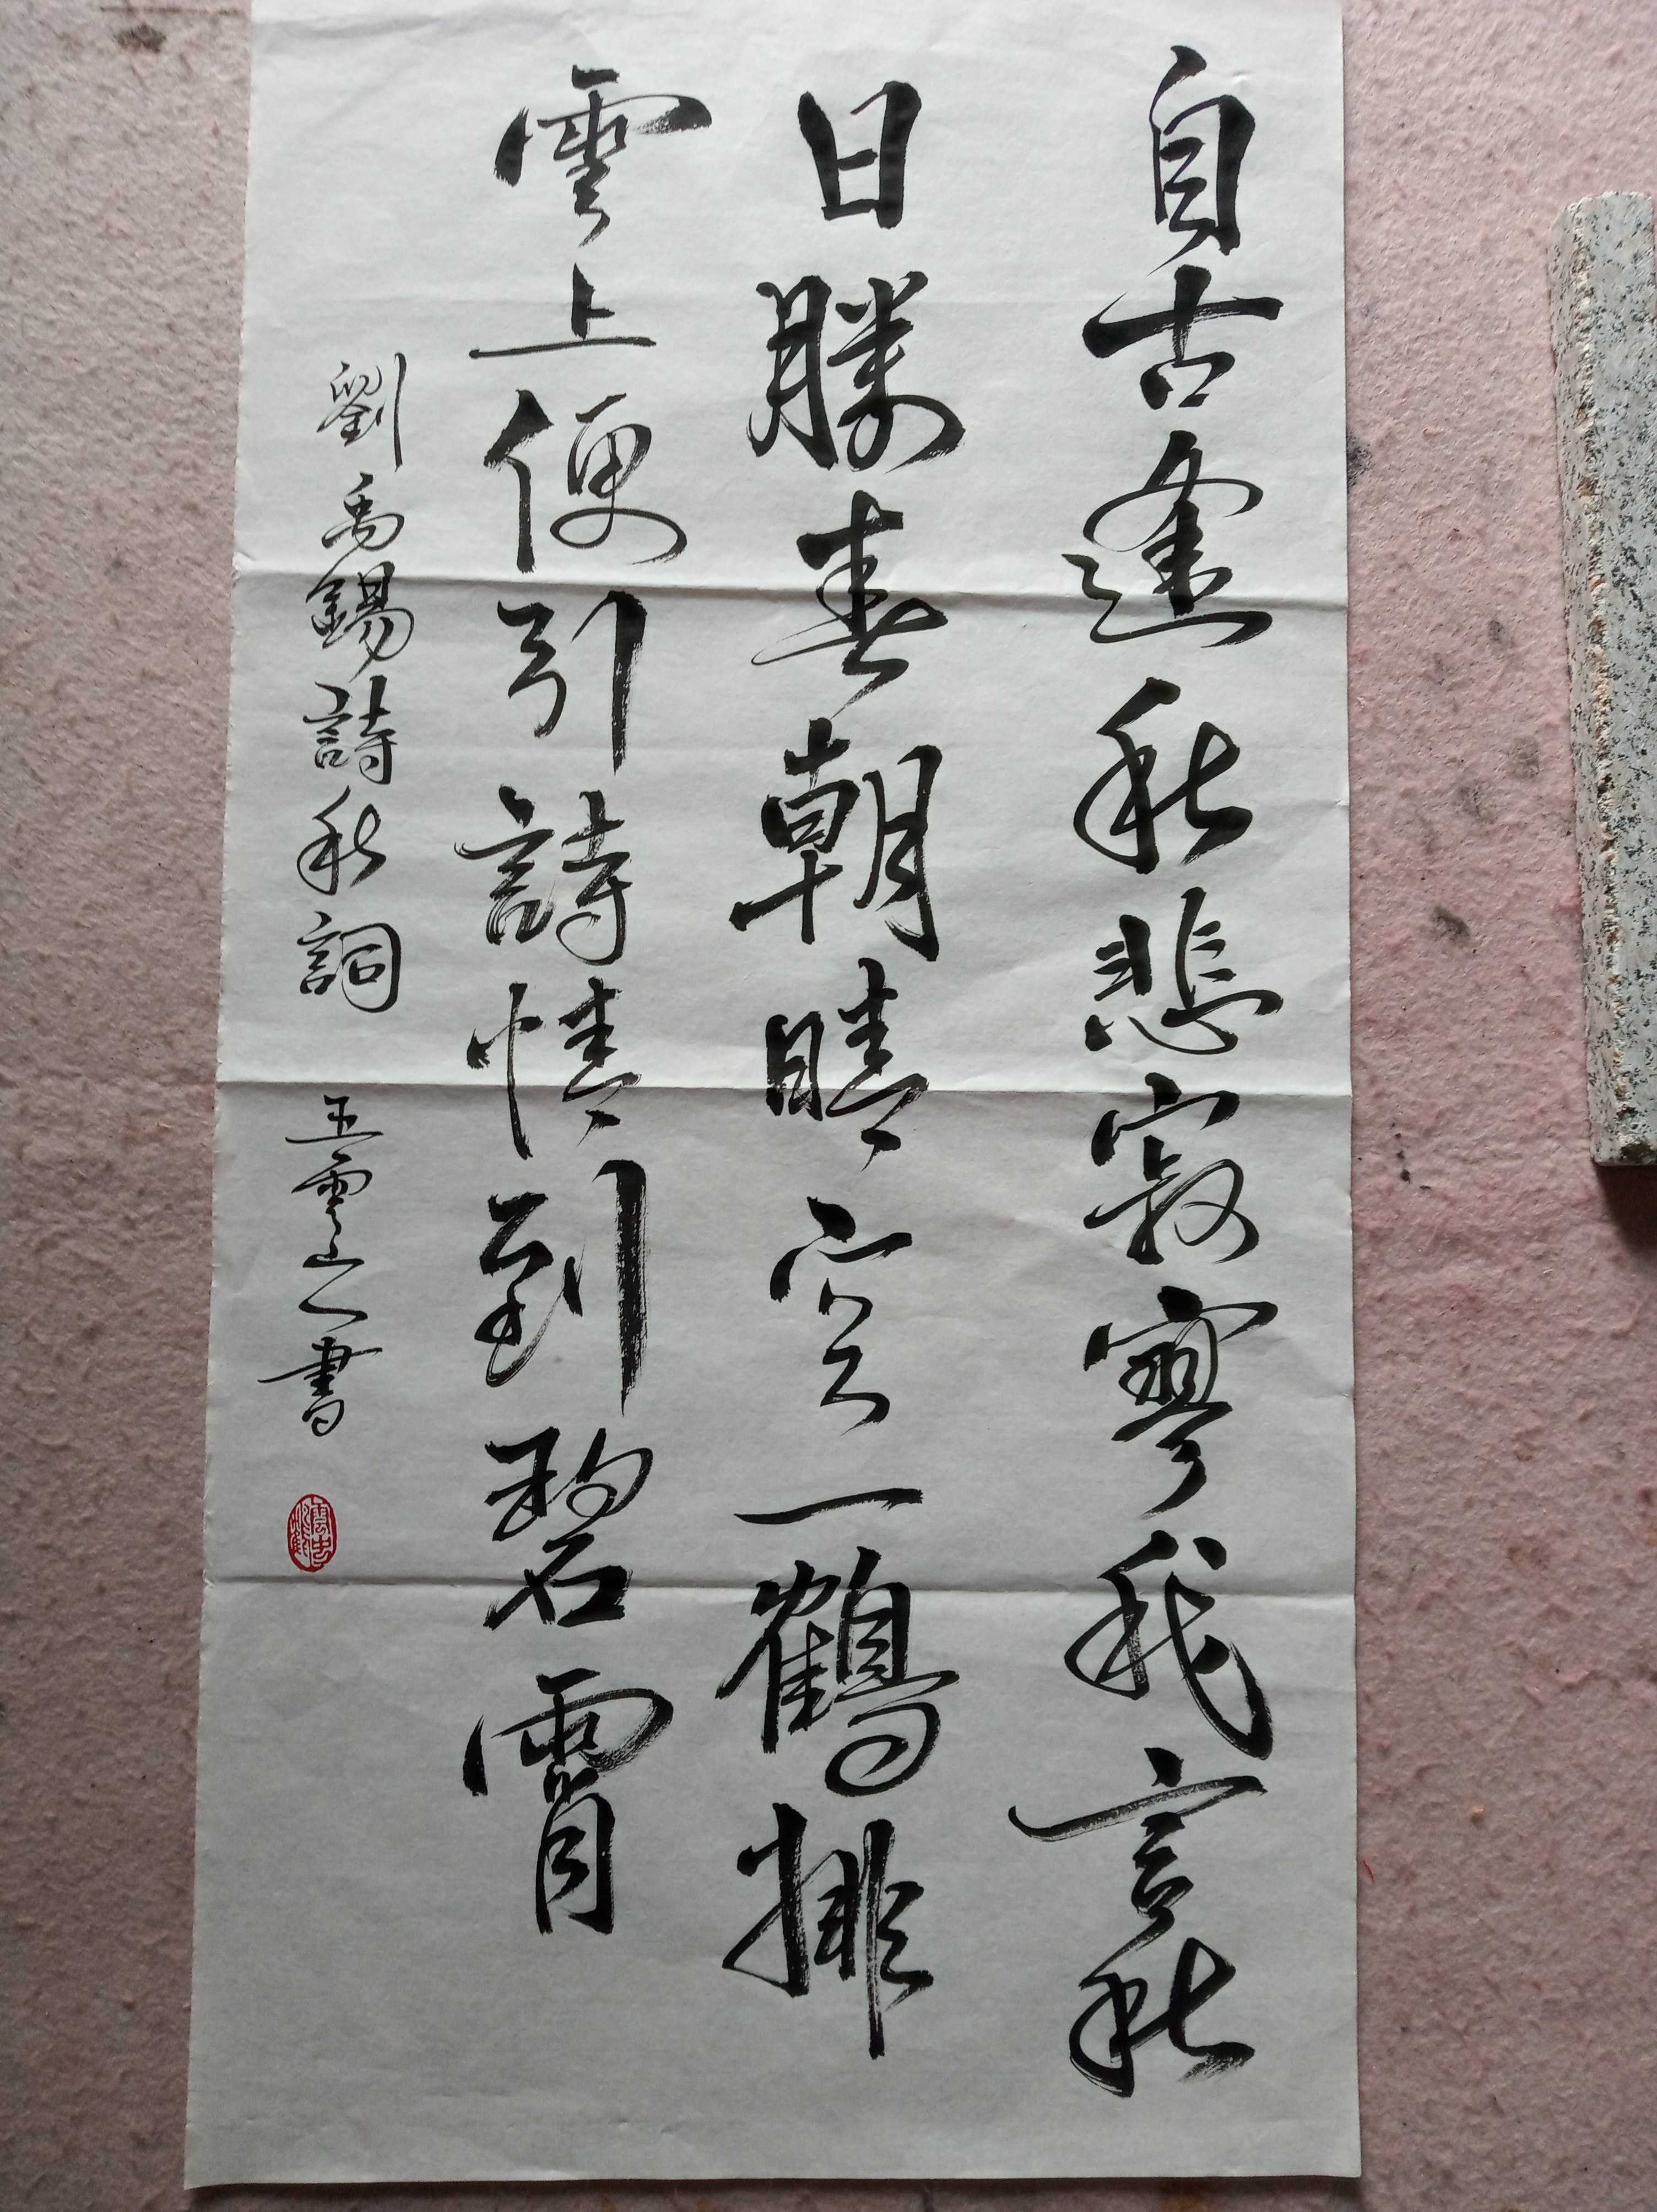 自古逢秋悲寂寥我言秋
日勝春朝晴空一鶴排
雲上便引詩情到碧霄
劉禹錫詩秋詞 雲山人書